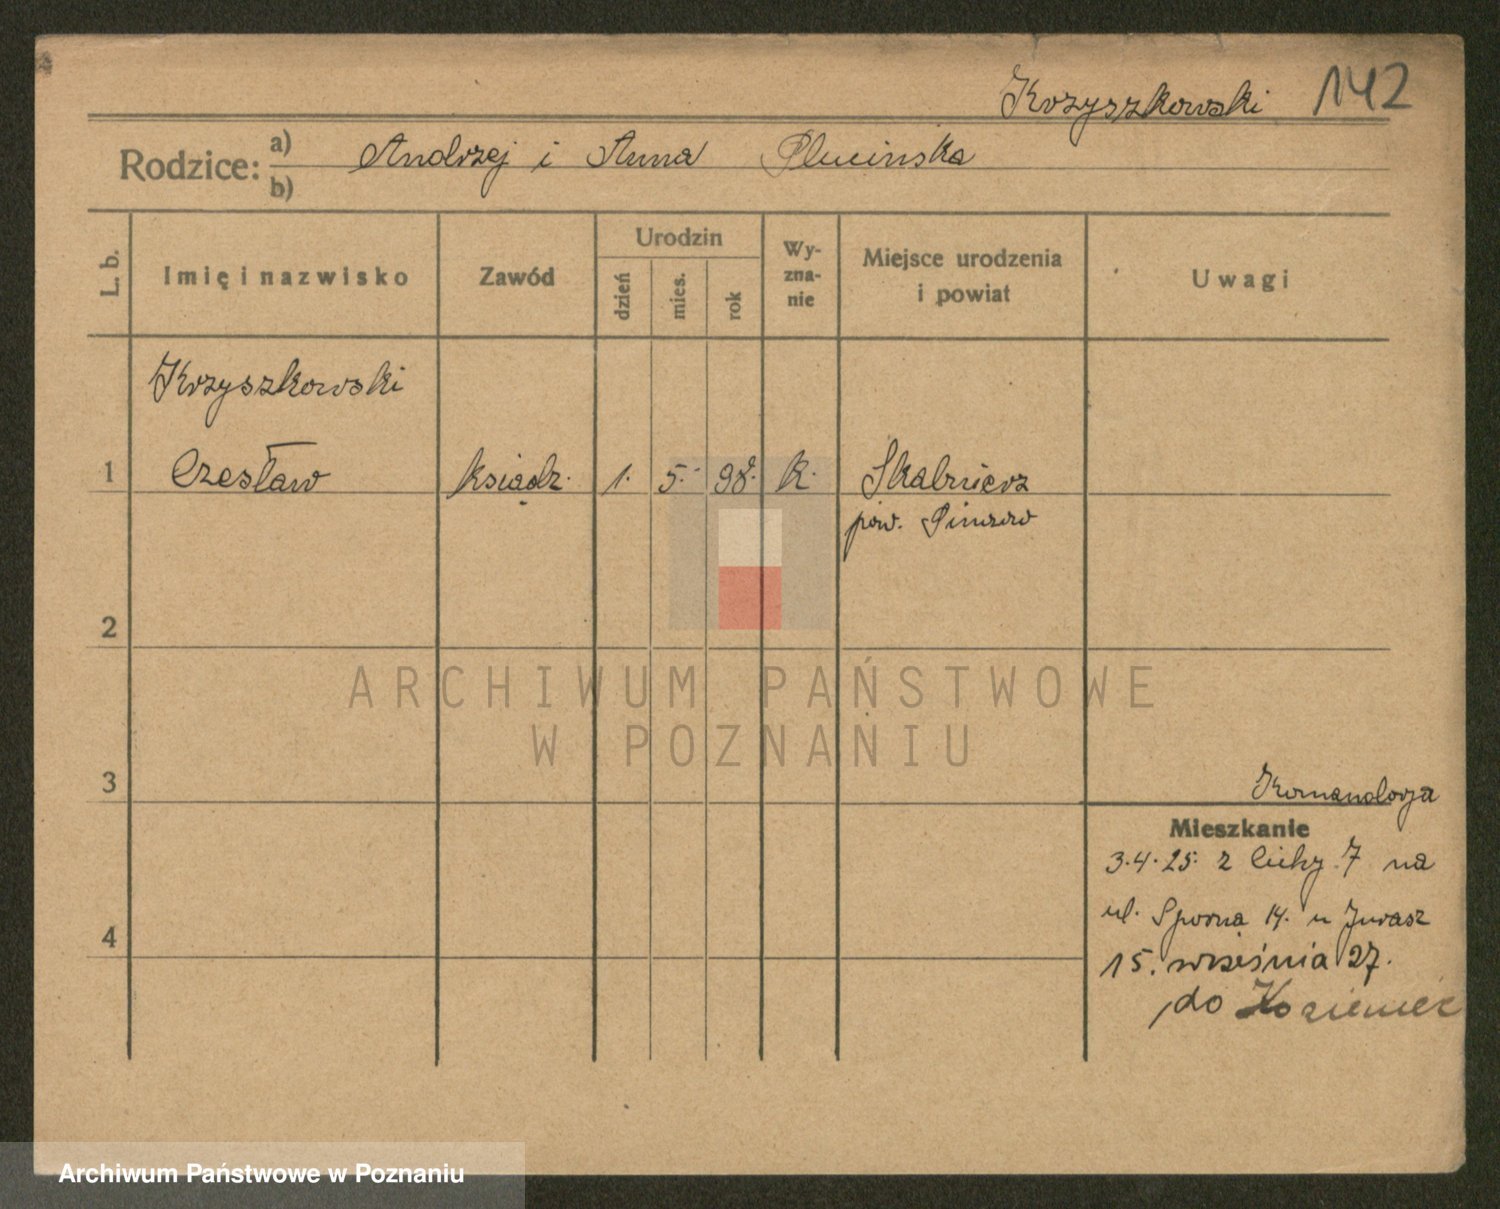 Krzyszkowski 142
Rodzice: a) Andrzej i Anna Plucińska
b)
L. b. Imię i nazwisko Zawód Urodzin dzień mies. rok Wy-zna-nie Miejsce urodzenia i powiat Uwagi
Krzyszkowski
1 Czesław ksiądz. 1. 5. 98. k. Skalmierz
pow. Pinczow
2
ARCHIWUM PAŃSTWOWE
W POZNANIU
3
Komandorja
Mieszkanie
3.4.25. z Cichy 7 na
4 ul. Sporna 14. u Jurasz
15. września 27.
do Kozienic
Archiwum Państwowe w Poznaniu